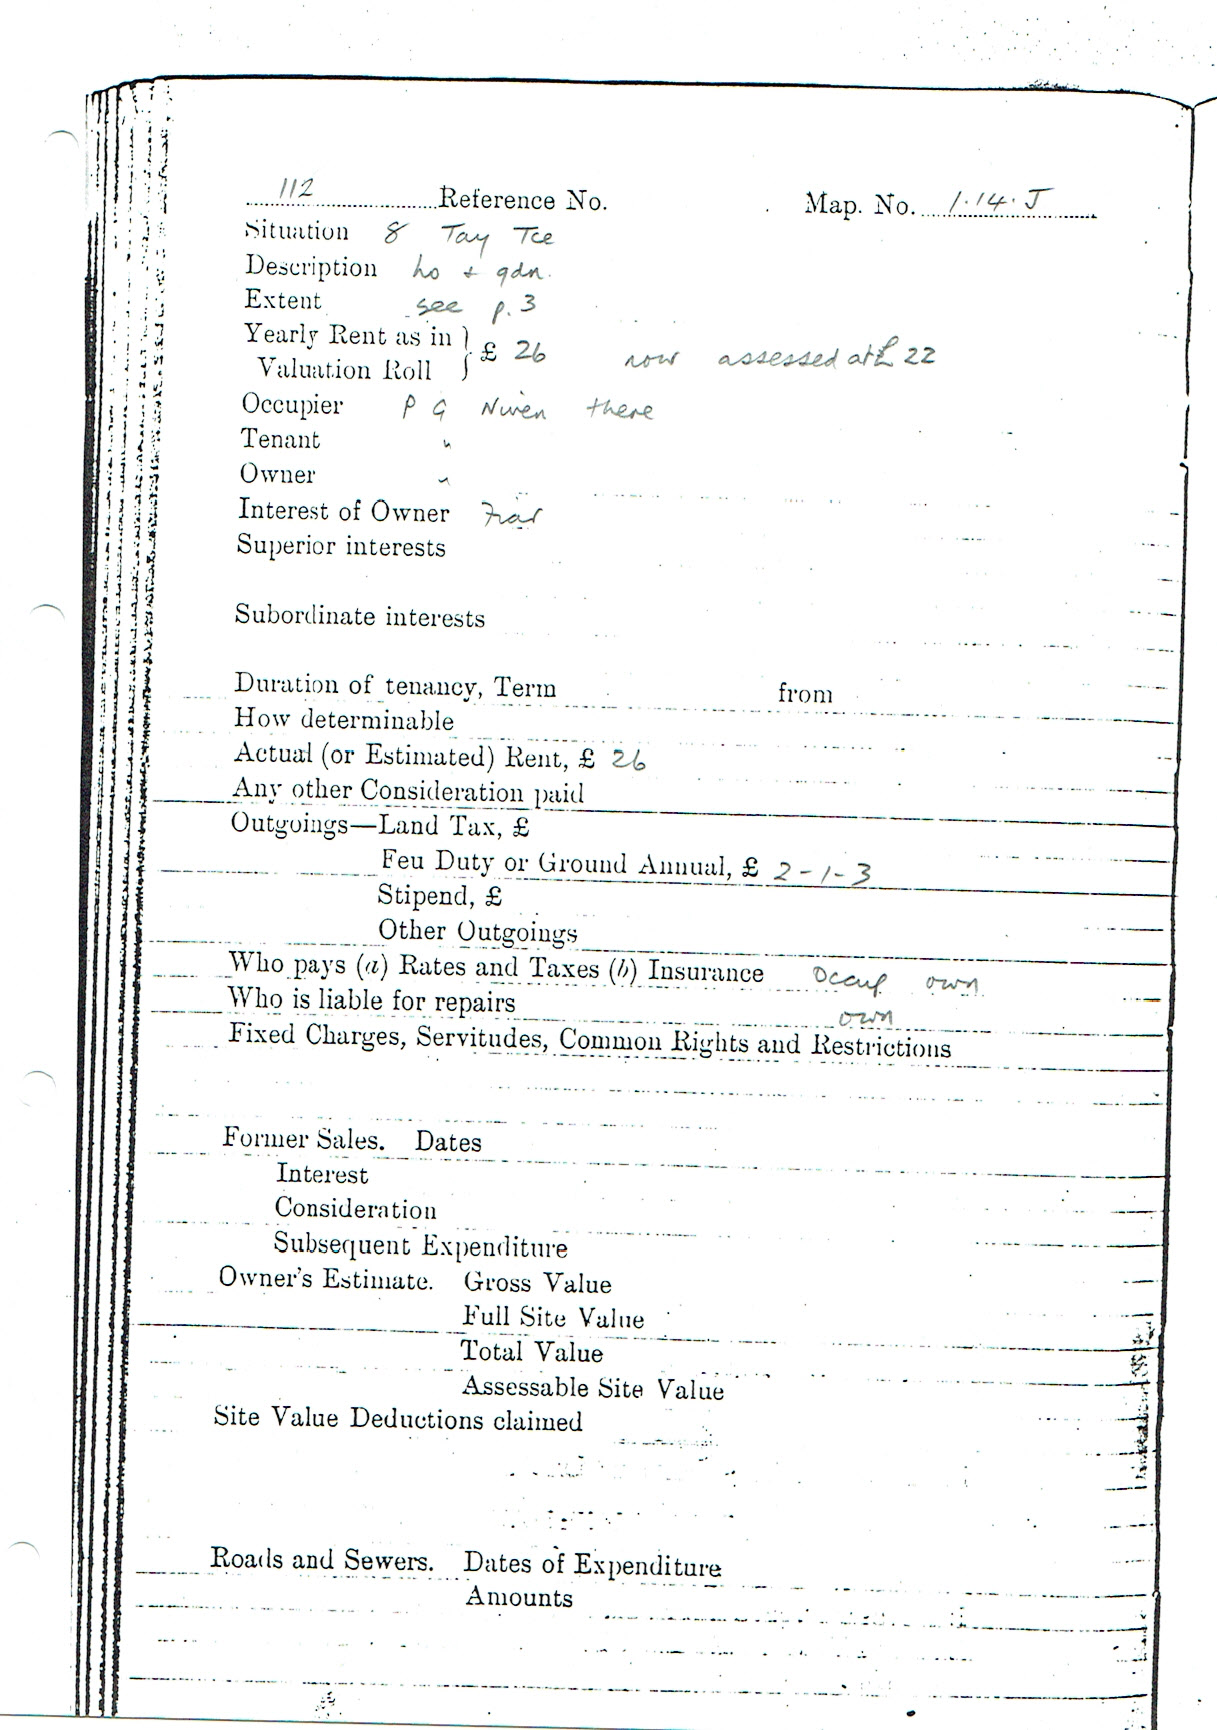 112 Reference No. Map. No. 1.14.J
Situation 8 Tay Tce
Description ho + gdn.
Extent see p.3
Yearly Rent as in } £ 26 now assessed at £22
Valuation Roll
Occupier P G Niven there
Tenant "
Owner "
Interest of Owner Fiar
Superior interests
Subordinate interests
Duration of tenancy, Term from
How determinable
Actual (or Estimated) Rent, £ 26
Any other Consideration paid
Outgoings—Land Tax, £
Feu Duty or Ground Annual, £ 2-1-3
Stipend, £
Other Outgoings
Who pays (a) Rates and Taxes (b) Insurance occup own
Who is liable for repairs own
Fixed Charges, Servitudes, Common Rights and Restrictions
Former Sales. Dates
Interest
Consideration
Subsequent Expenditure
Owner's Estimate. Gross Value
Full Site Value
Total Value
Assessable Site Value
Site Value Deductions claimed
Roads and Sewers. Dates of Expenditure
Amounts